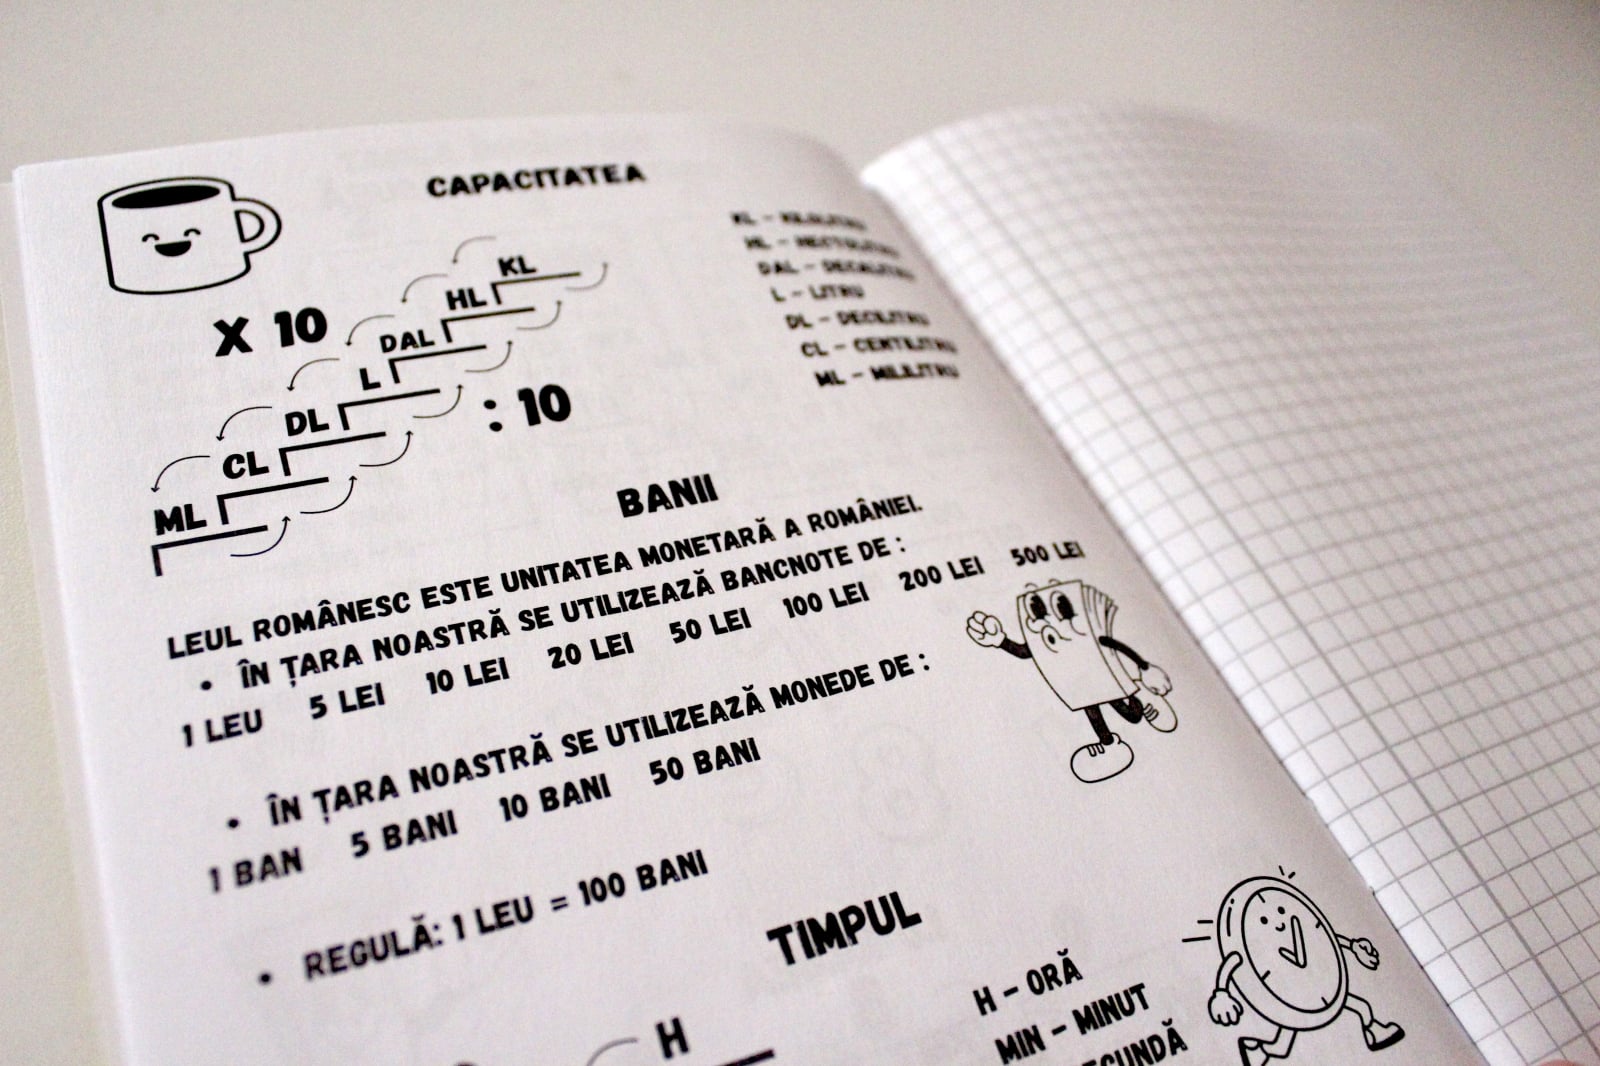 CAPACITATEA
X 10
KL
HL
DAL
L
DL
CL
ML
: 10
KL - KILOLITRU
HL - HECTOLITRU
DAL - DECALITRU
L - LITRU
DL - DECILITRU
CL - CENTILITRU
ML - MILILITRU
BANII
LEUL ROMÂNESC ESTE UNITATEA MONETARĂ A ROMÂNIEI.
• ÎN ȚARA NOASTRĂ SE UTILIZEAZĂ BANCNOTE DE :
1 LEU 5 LEI 10 LEI 20 LEI 50 LEI 100 LEI 200 LEI 500 LEI
• ÎN ȚARA NOASTRĂ SE UTILIZEAZĂ MONEDE DE :
1 BAN 5 BANI 10 BANI 50 BANI
• REGULĂ: 1 LEU = 100 BANI
TIMPUL
H - ORĂ
MIN - MINUT
H